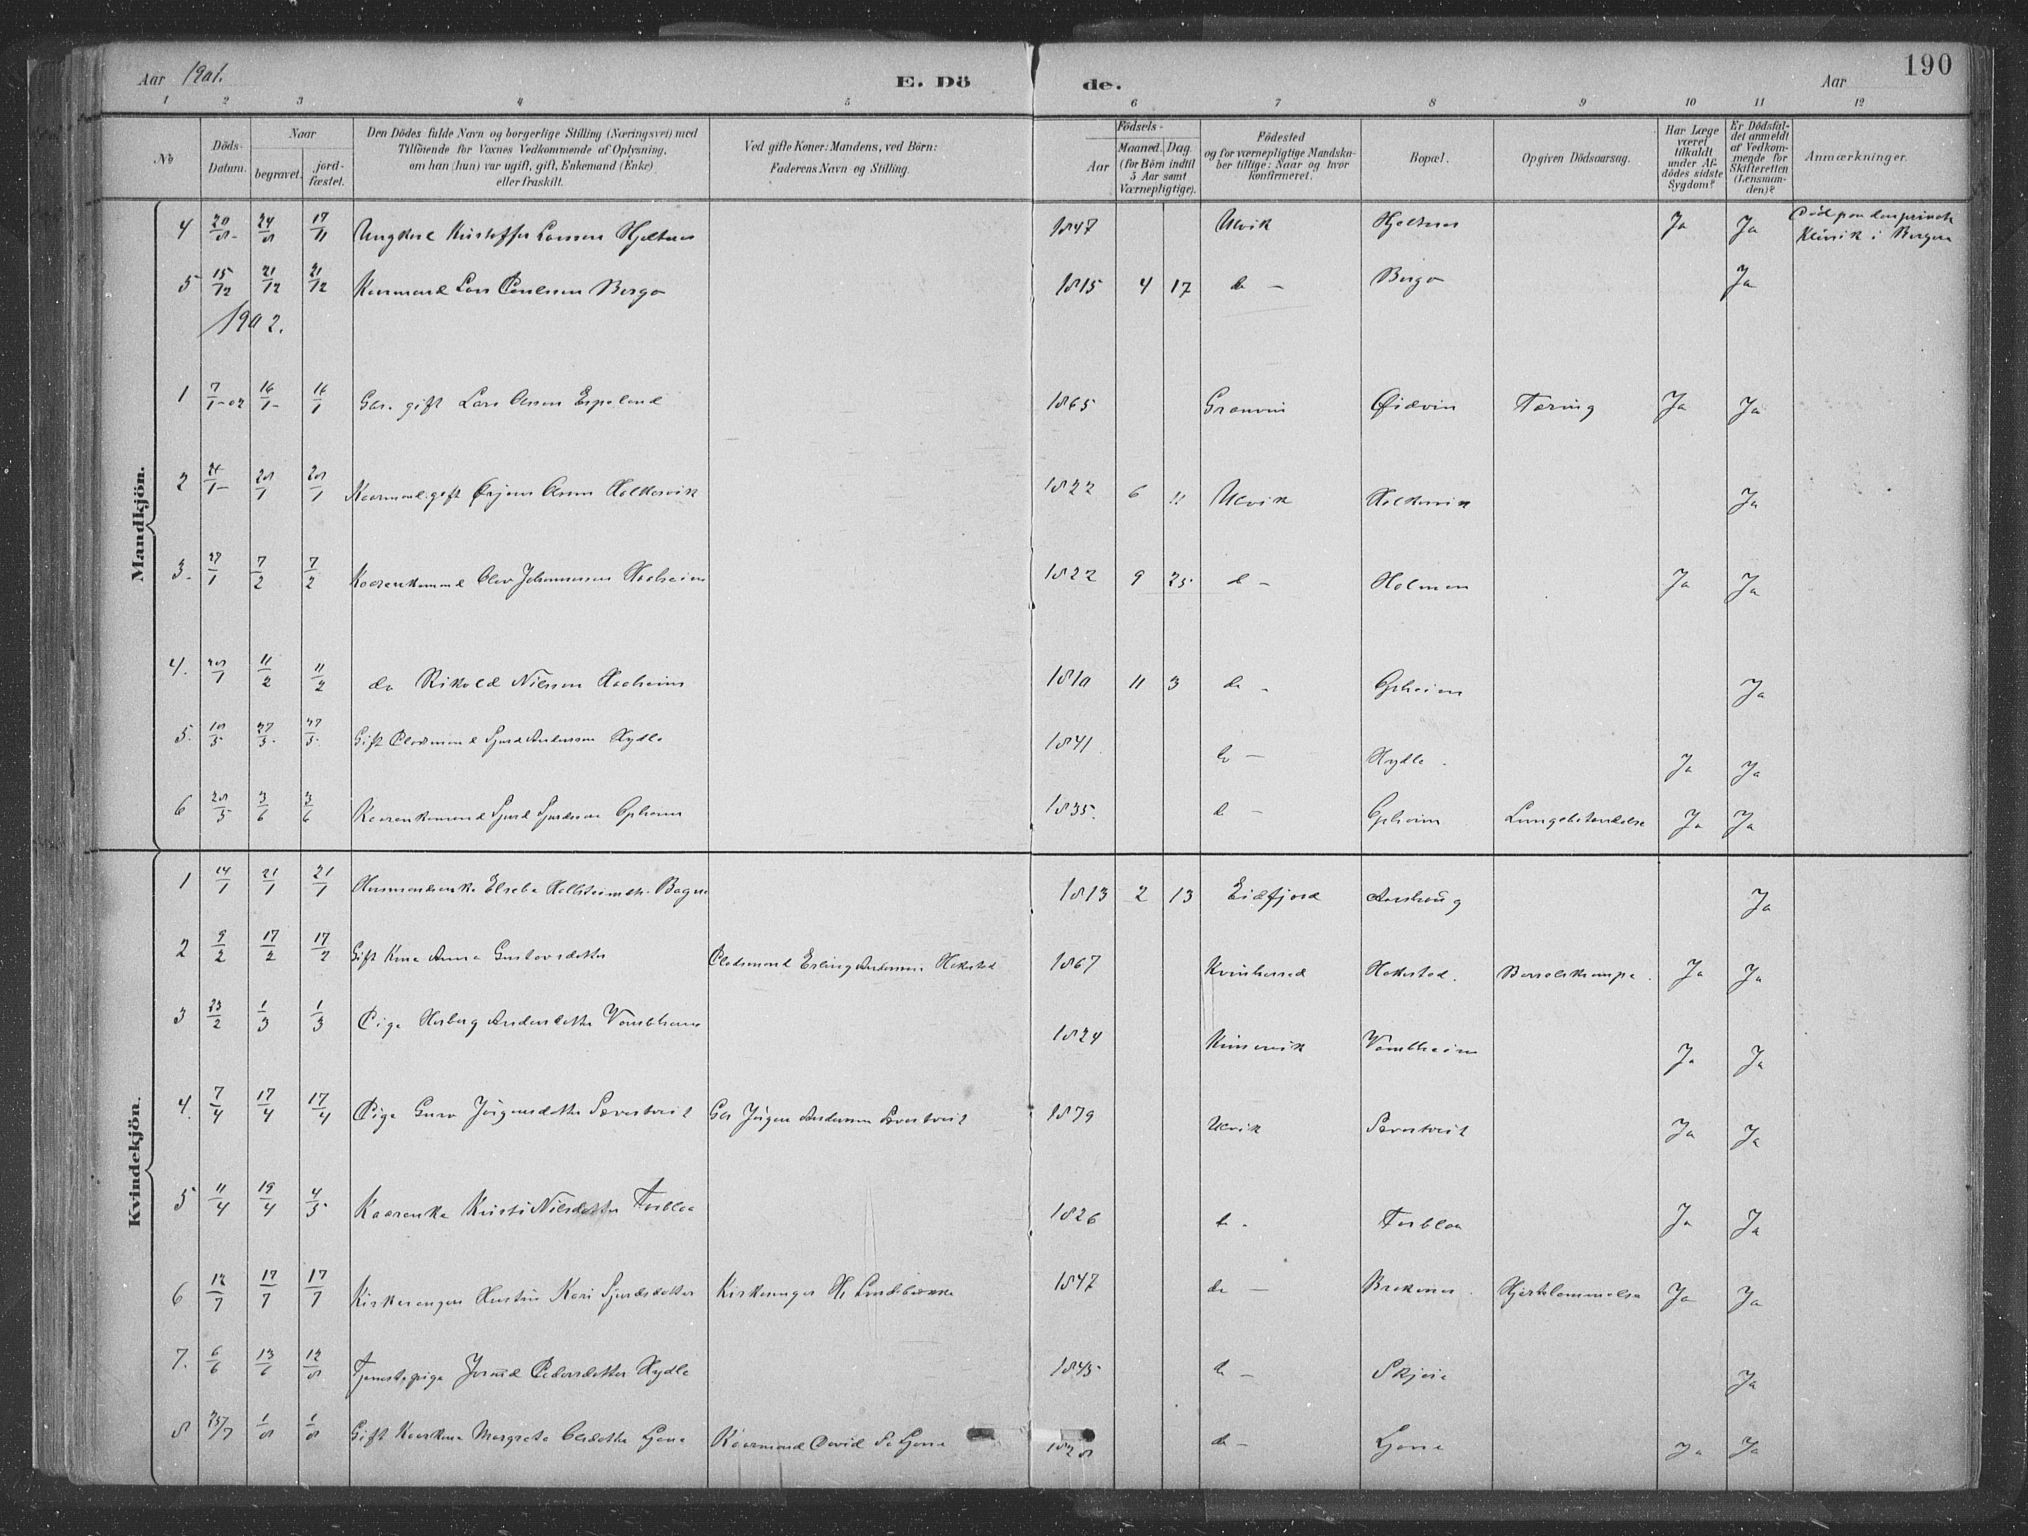 190
Aar 1901. E. Dö de. Aar
1 2 3 4 5 6 7 8 9 10 11 12
No Döds-Datum. Naar begravet. jordfæstet. Den Dödes fulde Navn og borgerlige Stilling (Næringsvei) med Tilföiende for Voxnes Vedkommende af Oplysning, om han (hun) var ugift, gift, Enkemand (Enke) eller fraskilt. Ved gifte Koner: Mandens, ved Börn: Faderens Navn og Stilling. Födsels- Aar Maaned. Dag (for Börn indtil 5 Aar samt Værnepligtige). Födested og for værnepligtige Mandskaber tillige: Naar og hvor konfirmeret. Bopæl. Opgiven Dödsaarsag. Har Læge været tilkaldt under Afdödes sidste Sygdom? Er Dödsfaldet anmeldt af Vedkommende for Skifteretten (Lensmanden)? Anmærkninger.
Mandkjön.
4 20/8 24/8 17/11 Ungkarl Kristoffer Larsen Hjeltnes 1847 Ulvik Hjeltnes Ja Ja Död paa den private Klinik i Bergen
5 15/12 21/12 21/12 Kaarmand Lars Paulsen Bergo 1815 4 17 do — Bergo Ja
1902.
1 7/1-02 16/1 16/1 Gbr. gift Lars Olsen Espeland 1865 Graven Øidvin Tæring Ja Ja
2 21/1 28/1 28/1 Kaarmand gift Ørjans Holkesvik 1822 6 11 Ulvik Holkesvik Ja
3. 27/1 7/2 7/2 Kaarenkemand Olav Johannessen Haaheim 1822 9 25 do — Holmen Ja Ja
4. 28/1 11/2 11/2 do Rikold Nilssen Haaheim 1810 11 3 do - Opheim Ja
5. 18/3 27/3 27/3 Gift Pladsmand Sjurd Andersen Hydle 1841 do — Hydle. Ja Ja
6 28/5 3/6 3/6 Kaarenkemand Sjurd Sjurdsson Opheim 1835. do — Opheim Lungebetændelse Ja Ja
Kvindekjön.
1 14/1 21/1 21/1 Husmandsenke Elsebe 1813 2 13 Eidfjord Ja
2 9/2 17/2 17/2 Gift Kone Anna Gustavsdatter Pladsmand Erling Andersen Hakestad 1867 Kvinherred Hakestad. Barselskrampe. Ja Ja
3 23/2 1/3 1/3 Pige Herborg Andersdatter Vambheim 1824 Kinservik Vambheim Ja Ja
4. 7/4 17/4 17/4 Pige Guro Jørgensdatter Sævartveit Gbr Jørgen Andersen Sævartveit 1879 Ulvik Sævartveit Ja Ja
5 11/4 19/4 4/5 Kaarenke Kristi Nilsdatter Torblaa 1826 do. Torblaa Ja Ja
6 12/7 17/7 17/7 Kirkesangers Hustru Kari Sjursdatter Kirkesanger H. Lindebrække 1847 do — Brakenes. Hjertelammelse Ja Ja
7. 6/6 13/6 12/8 Tjenestepige Jorand Pedersdatter Hydle 1845 do — Skjeie Ja
8 25/7 1/8 1/8 Gift Kaarkone Margreta Olsdatter Ljone Kaarmand David Ljone 1828 do — Ljone Ja Ja